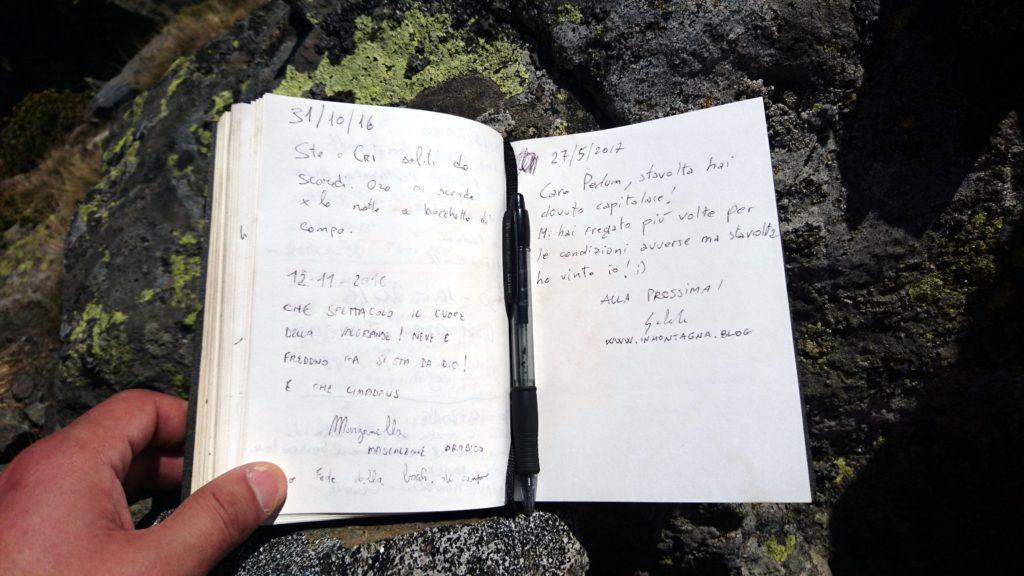 31/10/16
Ste e Cri soliti da
scordi. Ora si scende
x la notte a bocchetta di
campo.
12-11-2016
CHE SPETTACOLO IL CUORE
DELLA VALGRANDE! NEVE E
FREDDO MA SI STA DA DIO!
E CHE
MASCALZONE OROBICO
Fede della di campo
27/5/2017
Caro Pedum, stavolta hai
dovuto capitolare!
Mi hai fregato più volte per
le condizioni avverse ma stavolta
ho vinto io! ;)
ALLA PROSSIMA!
WWW.INMONTAGNA.BLOG